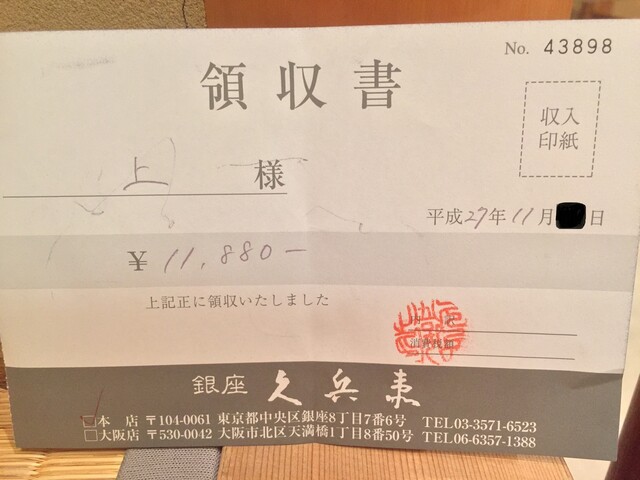 No. 43898
領収書
収入
印紙
上 様
平成27年11月 日
¥ 11,880-
上記正に領収いたしました
内 訳
消費税額
銀座 久兵衛
本 店 〒104-0061 東京都中央区銀座8丁目7番6号 TEL03-3571-6523
大阪店 〒530-0042 大阪市北区天満橋1丁目8番50号 TEL06-6357-1388